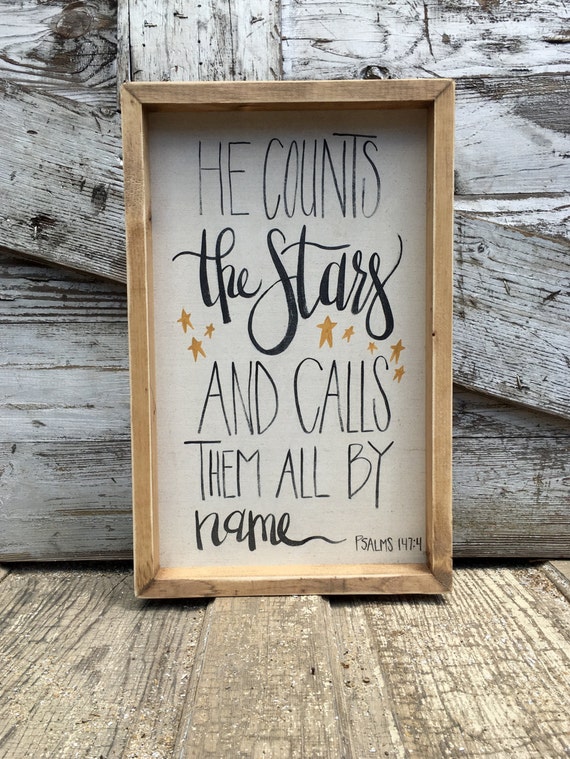 HE COUNTS
the Stars
AND CALLS
THEM ALL BY
name
PSALMS 147:4